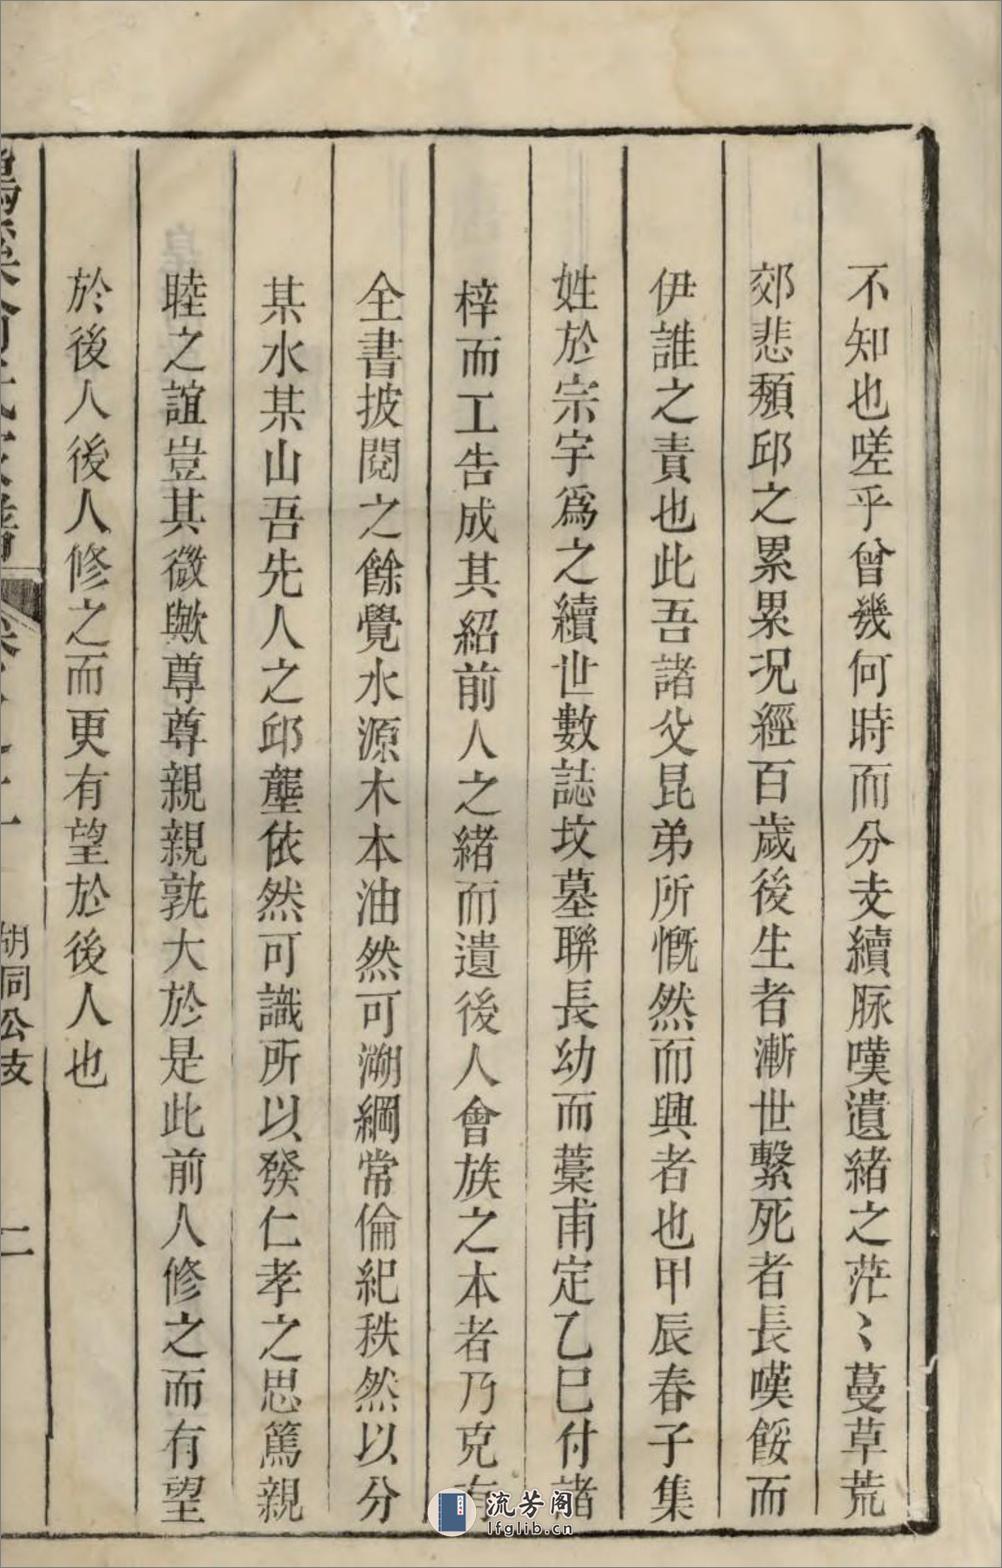 不知也嗟乎曾幾何時而分支續脉嘆遺緒之茫〻蔓草荒
郊悲頽邱之累累况經百歲後生者漸世繫死者長嘆餒而
伊誰之責也此吾諸父昆弟所慨然而興者也甲辰春子集
姓於宗宇爲之續世數誌坟墓聯長幼而藳甫定乙巳付諸
梓而工告成其紹前人之緒而遺後人會族之本者乃克有
全書披閱之餘覺水源木本油然可溯綱常倫紀秩然以分
某水某山吾先人之邱壟依然可識所以發仁孝之思篤親
睦之誼豈其微歟尊尊親親孰大於是此前人修之而有望
於後人後人修之而更有望於後人也
胡同公支
二
流芳阁
lfglib.cn